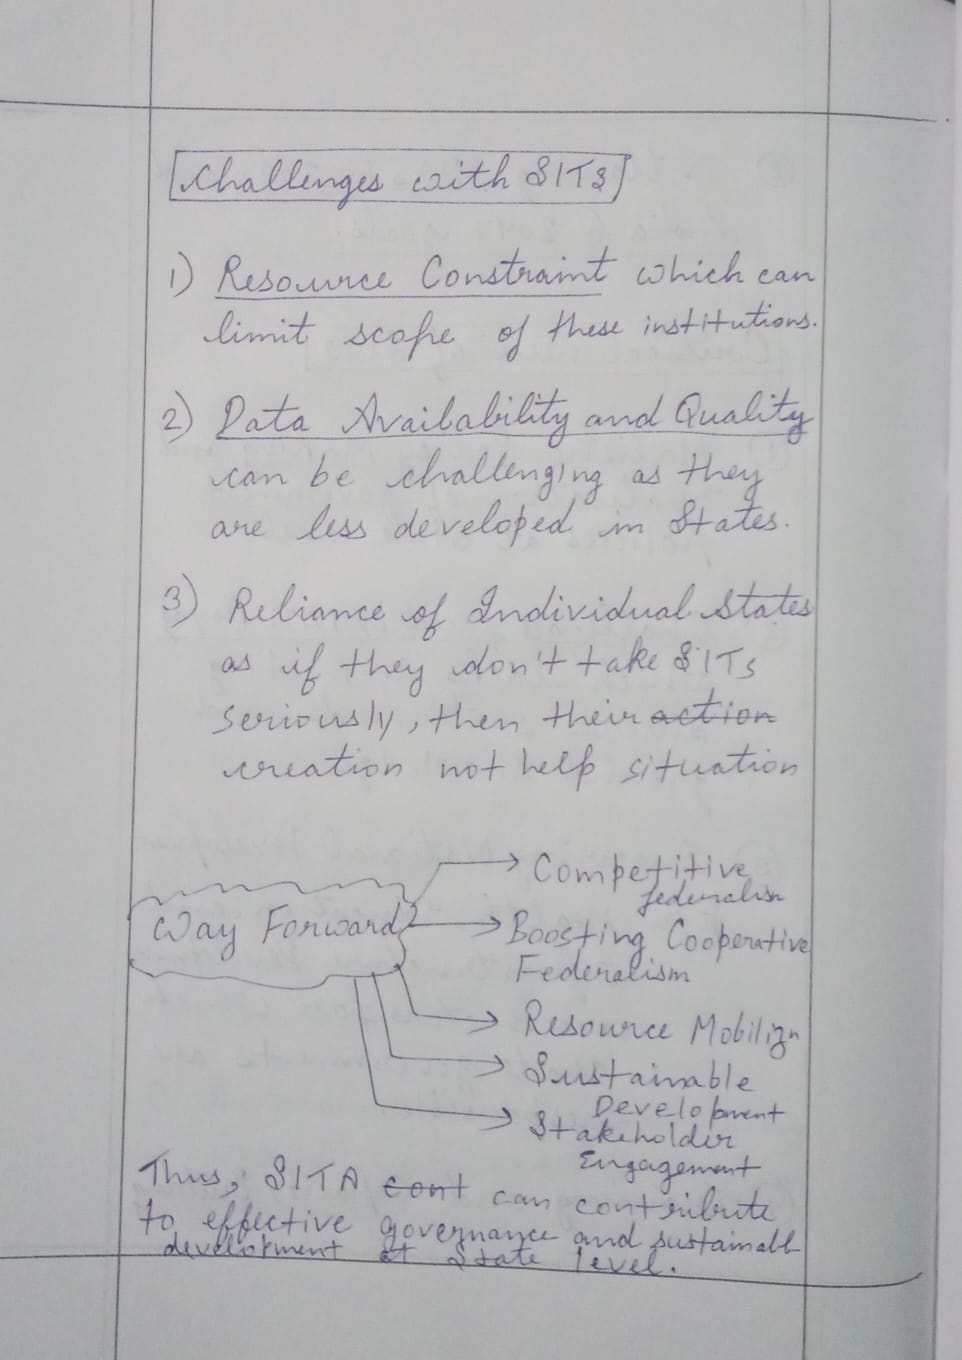 Challenges with SITs
1) Resource Constraint which can
limit scope of these institutions.
2) Data Availability and Quality
can be challenging as they
are less developed in States.
3) Reliance of Individual States
as if they don't take SITs
seriously, then their action
creation not help situation
Way Forward
Competitive
federalism
Boosting Cooperative
Federalism
Resource Mobilizn
Sustainable
Development
Stakeholder
Engagement
Thus, SITA cont can contribute
to effective governance and sustainabl
development at State level.